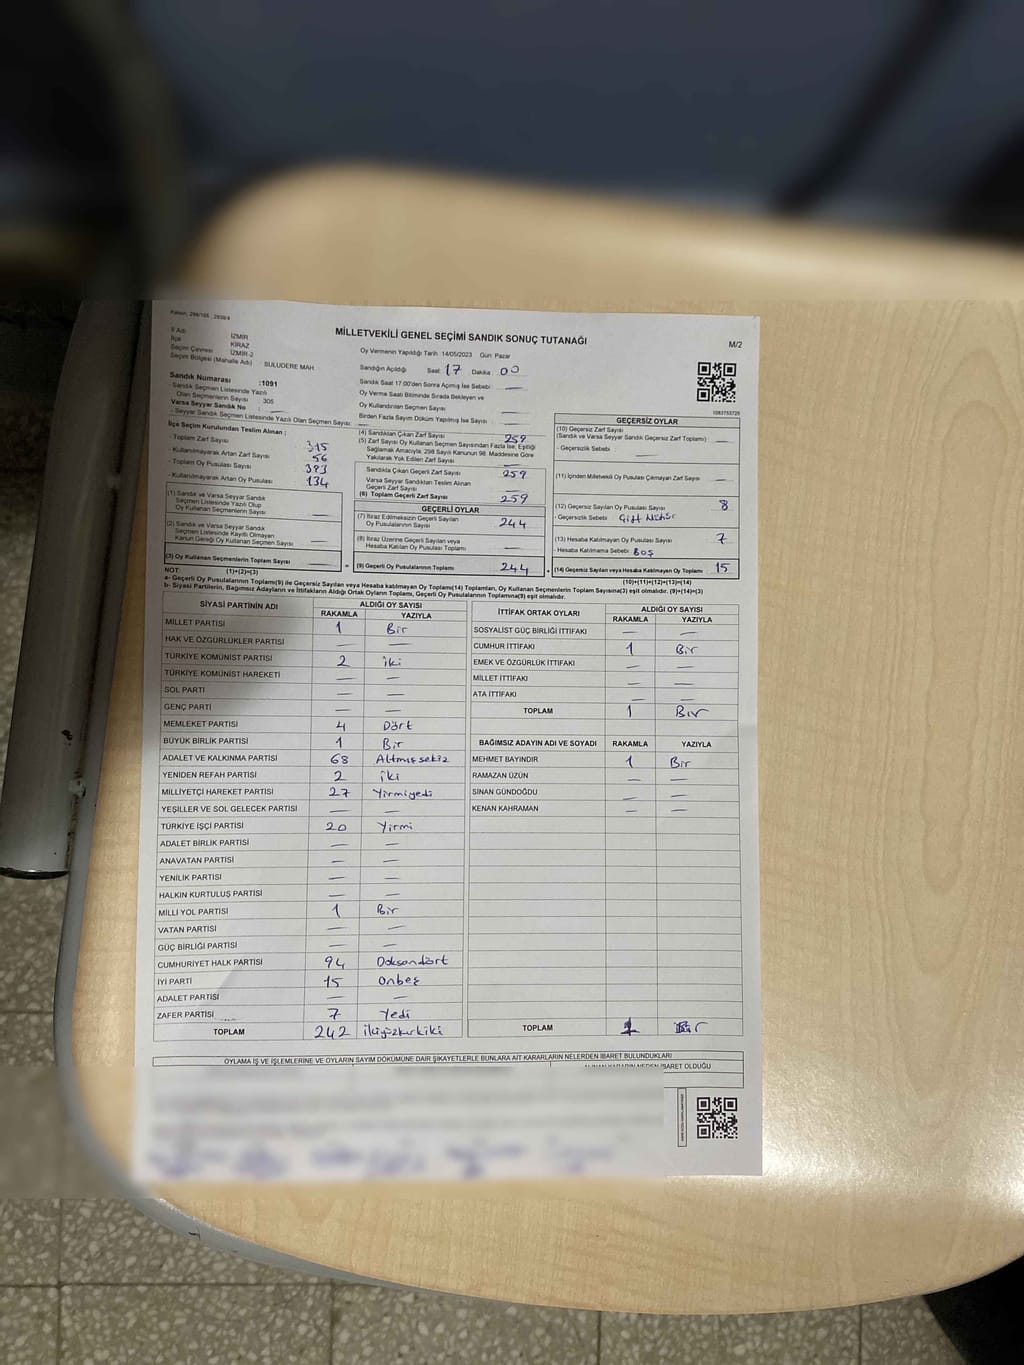 Kanun: 298/105 , 2839/4
MİLLETVEKİLİ GENEL SEÇİMİ SANDIK SONUÇ TUTANAĞI
M/2
İl Adı İZMİR
İlçe KİRAZ
Seçim Çevresi İZMİR-2
Seçim Bölgesi (Mahalle Adı) SULUDERE MAH
Oy Vermenin Yapıldığı Tarih 14/05/2023 Gün Pazar
Sandığın Açıldığı Saat 17 Dakika 00
Sandık Saat 17.00'den Sonra Açılmış İse Sebebi: —
Oy Verme Saati Bitiminde Sırada Bekleyen ve
Oy Kullandırılan Seçmen Sayısı —
Birden Fazla Sayım Döküm Yapılmış İse Sayısı : —
Sandık Numarası :1091
- Sandık Seçmen Listesinde Yazılı
Olan Seçmenlerin Sayısı 305
Varsa Seyyar Sandık No : —
- Seyyar Sandık Seçmen Listesinde Yazılı Olan Seçmen Sayısı: —
İlçe Seçim Kurulundan Teslim Alınan ;
- Toplam Zarf Sayısı 315
- Kullanılmayarak Artan Zarf Sayısı 56
- Toplam Oy Pusulası Sayısı 393
- Kullanılmayarak Artan Oy Pusulası 134
(1) Sandık ve Varsa Seyyar Sandık
Seçmen Listesinde Yazılı Olup
Oy Kullanan Seçmen Sayısı —
(2) Sandık ve Varsa Seyyar Sandık
Seçmen Listesinde Kayıtlı Olmayan
Kanun Gereği Oy Kullanan Seçmen Sayısı —
(3) Oy Kullanan Seçmenlerin Toplam Sayısı —
(1)+(2)=(3)
(4) Sandıktan Çıkan Zarf Sayısı 259
(5) Zarf Sayısı Oy Kullanan Seçmen Sayısından Fazla İse, Eşitliği
Sağlamak Amacıyla, 298 Sayılı Kanunun 98. Maddesine Göre
Yakılarak Yok Edilen Zarf Sayısı —
Sandıkta Çıkan Geçerli Zarf Sayısı 259
Varsa Seyyar Sandıktan Teslim Alınan
Geçerli Zarf Sayısı —
(6) Toplam Geçerli Zarf Sayısı 259
GEÇERLİ OYLAR
(7) İtiraz Edilmeksizin Geçerli Sayılan
Oy Pusulalarının Sayısı 244
(8) İtiraz Üzerine Geçerli Sayılan veya
Hesaba Katılan Oy Pusulası Toplamı —
(9) Geçerli Oy Pusulalarının Toplamı 244
1083753725
GEÇERSİZ OYLAR
(10) Geçersiz Zarf Sayısı
(Sandık ve Varsa Seyyar Sandık Geçersiz Zarf Toplamı) —
- Geçersizlik Sebebi —
(11) İçinden Milletvekili Oy Pusulası Çıkmayan Zarf Sayısı —
(12) Geçersiz Sayılan Oy Pusulası Sayısı 8
- Geçersizlik Sebebi Çift Mühür
(13) Hesaba Katılmayan Oy Pusulası Sayısı 7
- Hesaba Katılmama Sebebi Boş
(14) Geçersiz Sayılan veya Hesaba Katılmayan Oy Toplamı 15
(10)+(11)+(12)+(13)=(14)
NOT:
a- Geçerli Oy Pusulalarının Toplamı(9) ile Geçersiz Sayılan veya Hesaba katılmayan Oy Toplamı(14) Toplamları, Oy Kullanan Seçmenlerin Toplam Sayısına(3) eşit olmalıdır. (9)+(14)=(3)
b- Siyasi Partilerin, Bağımsız Adayların ve İttifakların Aldığı Ortak Oyların Toplamı, Geçerli Oy Pusulalarının Toplamına(9) eşit olmalıdır.
SİYASİ PARTİNİN ADI ALDIĞI OY SAYISI
RAKAMLA YAZIYLA
MİLLET PARTİSİ 1 Bir
HAK VE ÖZGÜRLÜKLER PARTİSİ — —
TÜRKİYE KOMÜNİST PARTİSİ 2 iki
TÜRKİYE KOMÜNİST HAREKETİ — —
SOL PARTİ — —
GENÇ PARTİ — —
MEMLEKET PARTİSİ 4 Dört
BÜYÜK BİRLİK PARTİSİ 1 Bir
ADALET VE KALKINMA PARTİSİ 68 Altmışsekiz
YENİDEN REFAH PARTİSİ 2 iki
MİLLİYETÇİ HAREKET PARTİSİ 27 Yirmiyedi
YEŞİLLER VE SOL GELECEK PARTİSİ — —
TÜRKİYE İŞÇİ PARTİSİ 20 Yirmi
ADALET BİRLİK PARTİSİ — —
ANAVATAN PARTİSİ — —
YENİLİK PARTİSİ — —
HALKIN KURTULUŞ PARTİSİ — —
MİLLİ YOL PARTİSİ 1 Bir
VATAN PARTİSİ — —
GÜÇ BİRLİĞİ PARTİSİ — —
CUMHURİYET HALK PARTİSİ 94 Doksandört
İYİ PARTİ 15 Onbeş
ADALET PARTİSİ — —
ZAFER PARTİSİ 7 Yedi
TOPLAM 242 ikiyüzkırkiki
İTTİFAK ORTAK OYLARI ALDIĞI OY SAYISI
RAKAMLA YAZIYLA
SOSYALİST GÜÇ BİRLİĞİ İTTİFAKI — —
CUMHUR İTTİFAKI 1 Bir
EMEK VE ÖZGÜRLÜK İTTİFAKI — —
MİLLET İTTİFAKI — —
ATA İTTİFAKI — —
TOPLAM 1 Bir
BAĞIMSIZ ADAYIN ADI VE SOYADI RAKAMLA YAZIYLA
MEHMET BAYINDIR 1 Bir
RAMAZAN ÜZÜN — —
SİNAN GÜNDOĞDU — —
KENAN KAHRAMAN — —
TOPLAM 1 Bir
OYLAMA İŞ VE İŞLEMLERİNE VE OYLARIN SAYIM DÖKÜMÜNE DAİR ŞİKAYETLERLE BUNLARA AİT KARARLARIN NELERDEN İBARET BULUNDUKLARI
ALINAN KARARIN NEDEN İBARET OLDUĞU